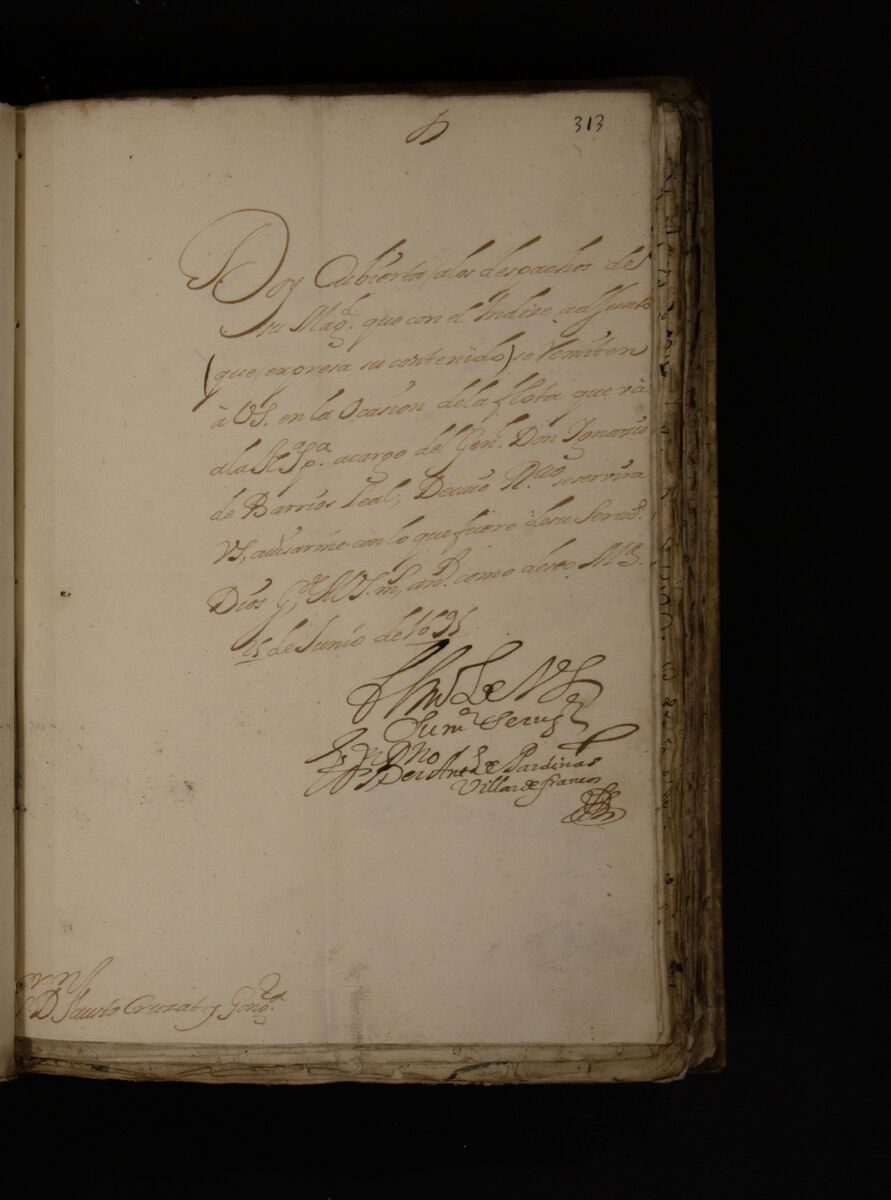 313
Doy Cubierta, a los despachos de
su Magd. que con el Yndize adJunto
(que, expresa su contenido) se Remiten
à VS. en la Ocasion de la flota que, va
a la Na. Spa. a cargo del Genl. Don Ignacio
de Barrios Leal, De cuio R.uo se servira
VS, auisarme con lo que fuere de su Seruo.
Dios Gde. A VS. ms. ans. como deseo. Md.
15 de Junio de 1695
BlM De VS
Su mr. Serur.
Dn. Berno. Anto. de Pardinas
Villar de francos
Sr. Dn. fausto Cruzat y Gongra.